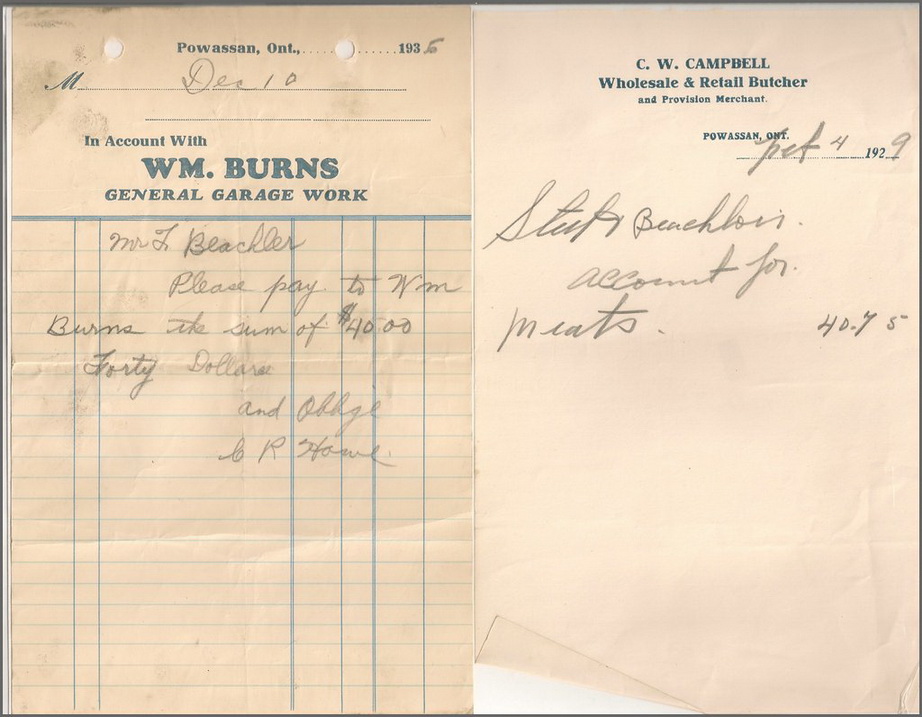 Powassan, Ont., 1936
M Dec 10
In Account With
WM. BURNS
GENERAL GARAGE WORK
Mr F Beachler
Please pay to Wm
Burns the sum of $40.00
Forty Dollars
and Oblige
C R Howe
C. W. CAMPBELL
Wholesale & Retail Butcher
and Provision Merchant.
POWASSAN, ONT.
4 1929
account for
Meats. 40.75